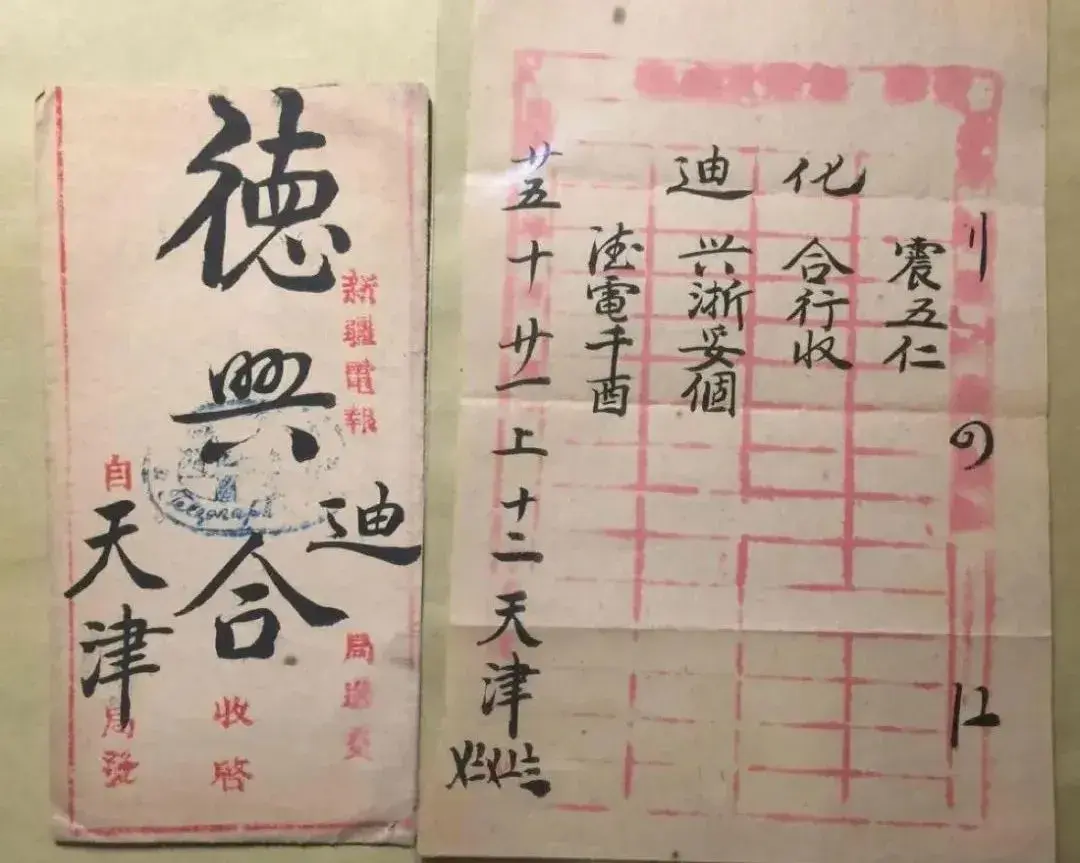 新疆電報迪局送交
德興合收啓
Telegraph
自天津局發
震五仁
化合行收
迪兴浙妥個
電
廿五十廿一上十二天津